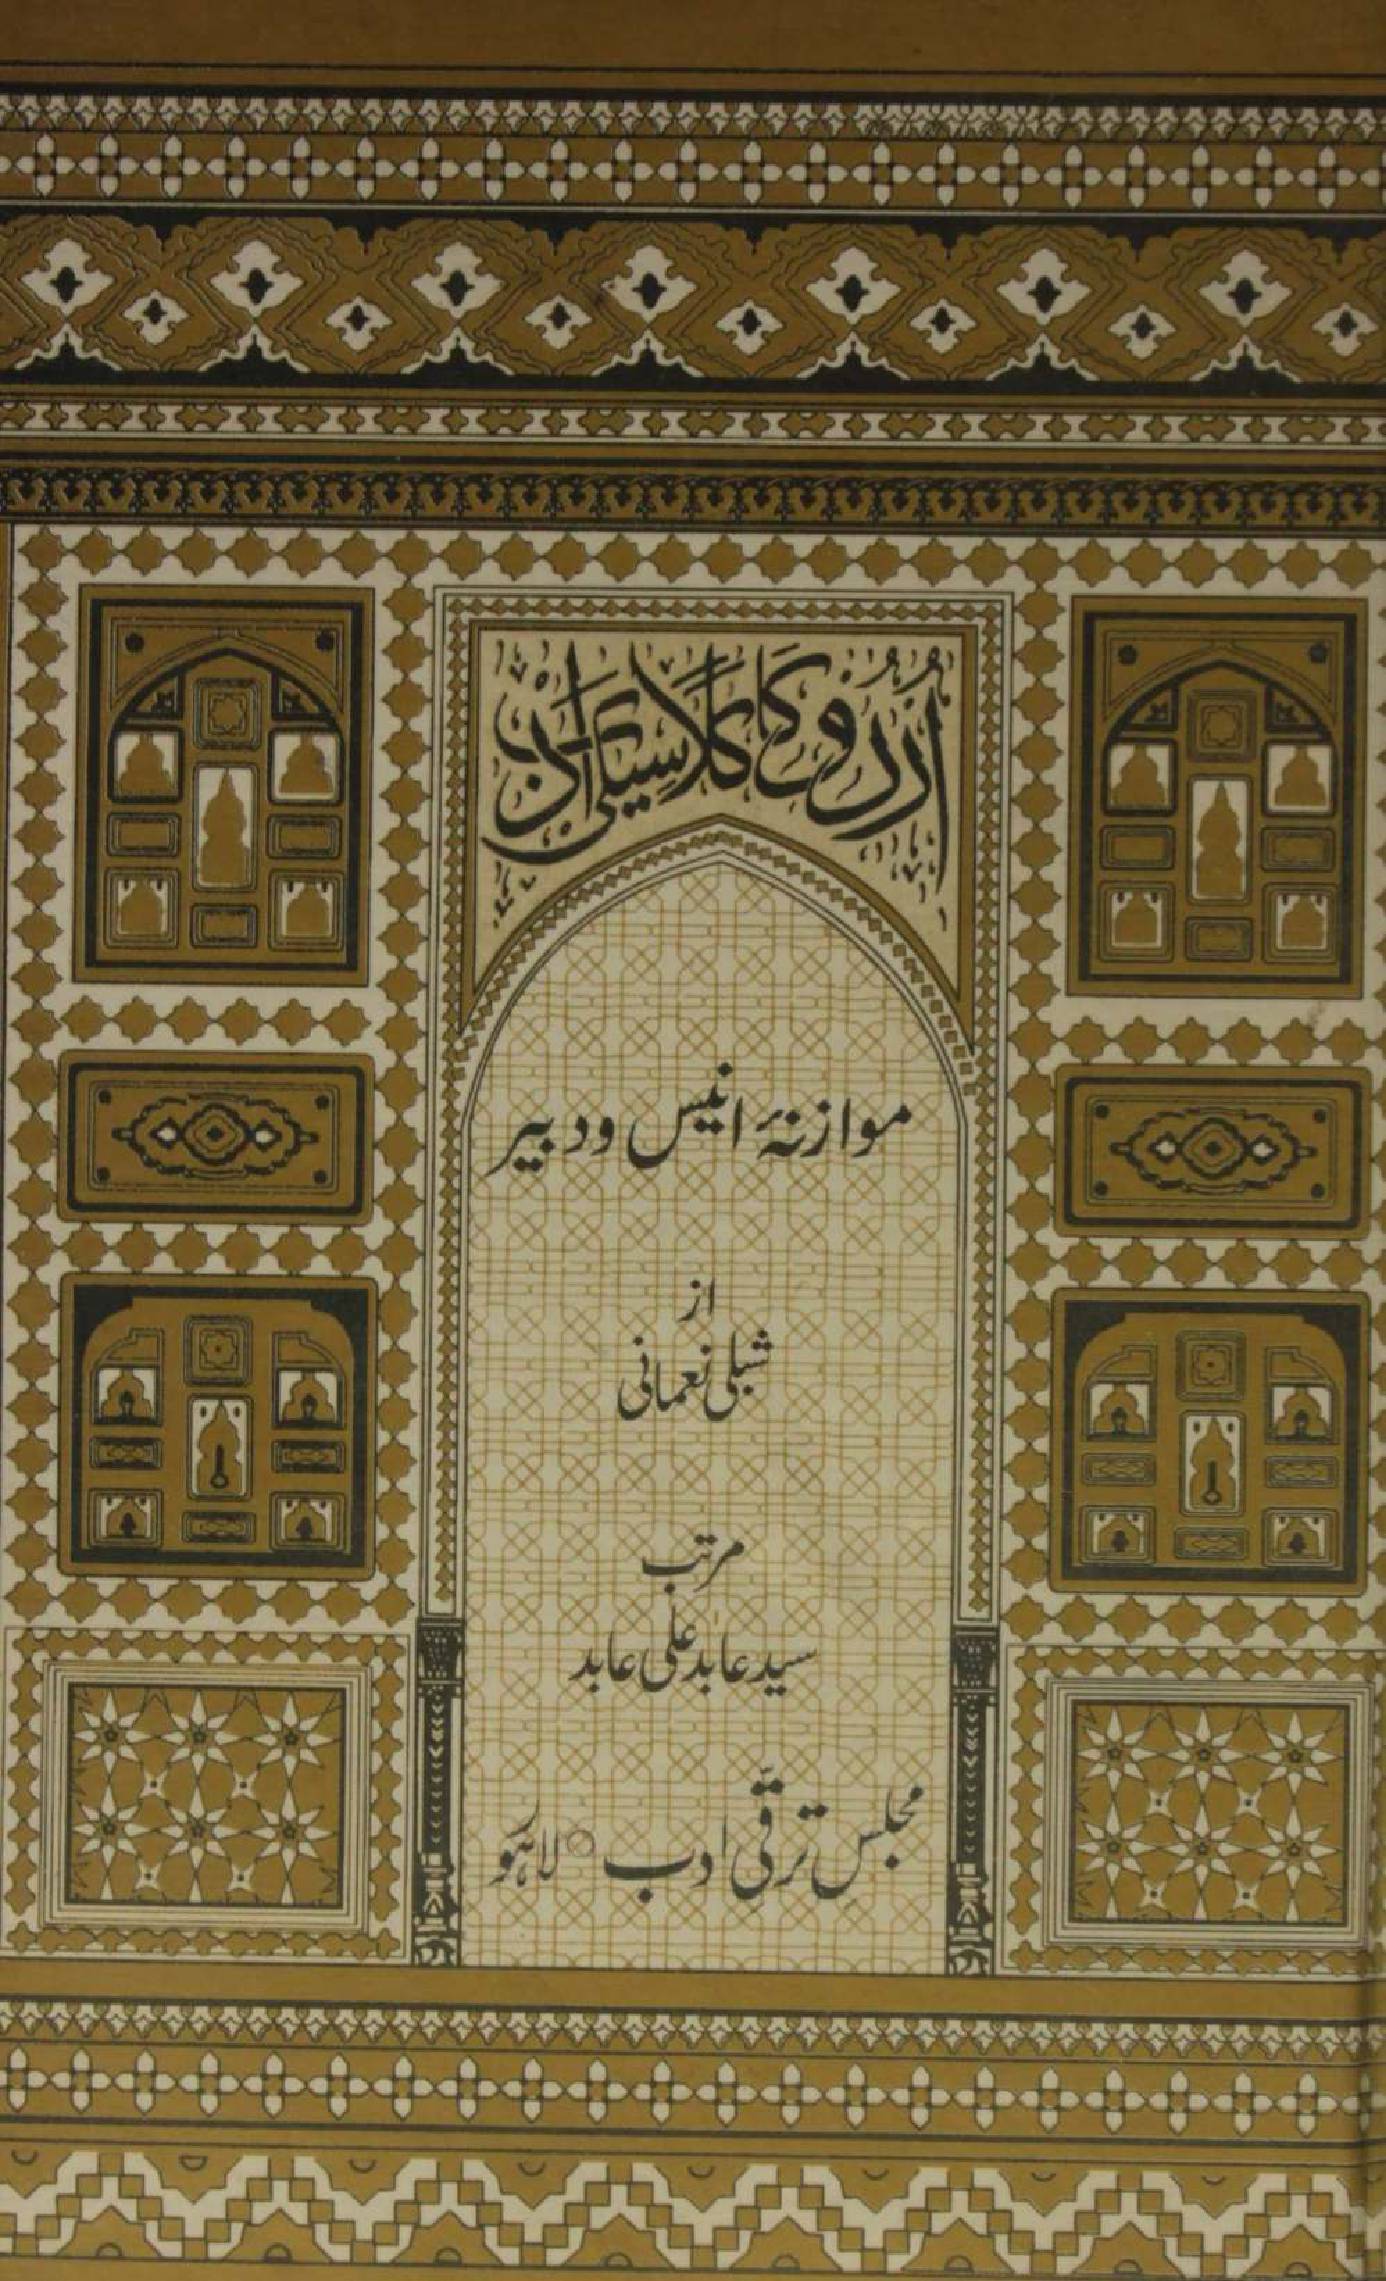 اردو کا کلاسیکی ادب
موازنۂ انیس و دبیر
از
شبلی نعمانی
مرتب
سید عابد علی عابد
مجلسِ ترقیِ ادب ○ لاہور